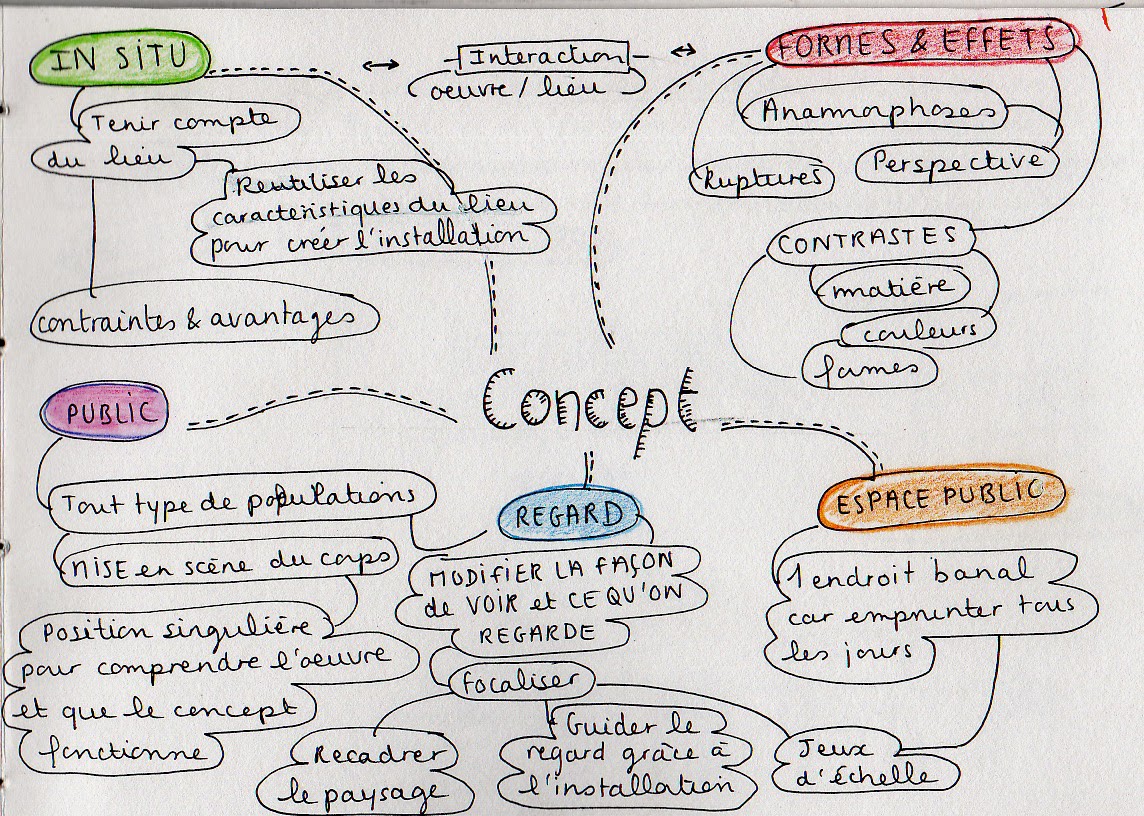 IN SITU
Tenir compte
du lieu
Reutiliser les
caracteristiques du lieu
pour créer l'installation
contraintes & avantages
Interaction
oeuvre / lieu
FORMES & EFFETS
Anamorphoses
Ruptures
Perspective
CONTRASTES
matière
couleurs
formes
Concept
PUBLIC
Tout type de populations
MISE en scène du corps
Position singulière
pour comprendre l'oeuvre
et que le concept
fonctionne
REGARD
MODIFIER LA FAÇON
de VOIR et CE QU'ON
REGARDE
focaliser
Recadrer
le paysage
Guider le
regard grâce à
l'installation
Jeux
d'échelle
ESPACE PUBLIC
1 endroit banal
car emprunter tous
les jours